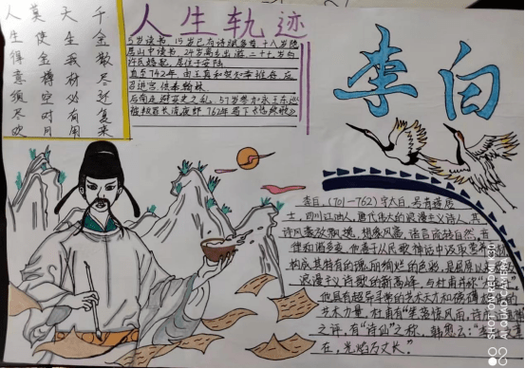 人生得意须尽欢
莫使金樽空对月
天生我材必有用
千金散尽还复来
人生轨迹
5岁读书,15岁已有诗赋多首 十八岁隐
居山中读书 24岁离 出游 二十
许氏结婚,居住于安陆
直至742年 由玉真和贺知章推荐 应
召进宫 供奉翰林
避安史之乱,57岁参加永王东巡
流夜郎 762年
李白
李白,(701—762)字太白,号青莲居
士,四川江油人,唐代伟大的浪漫主义诗人,其
诗风豪放飘逸,想象风富,语言流转自然,音
律和谐多变,他善于从民歌 神话中汲取营养
构成其特有的瑰丽绚烂的色彩,是屈原以
浪漫主义诗歌的新高峰,与杜甫并称
他具有超异寻常的艺术天才和
艺术力量,杜甫有"笔落惊风雨,诗
之评,有"诗仙"之称,韩愈云:"李
在,光焰万丈长"。